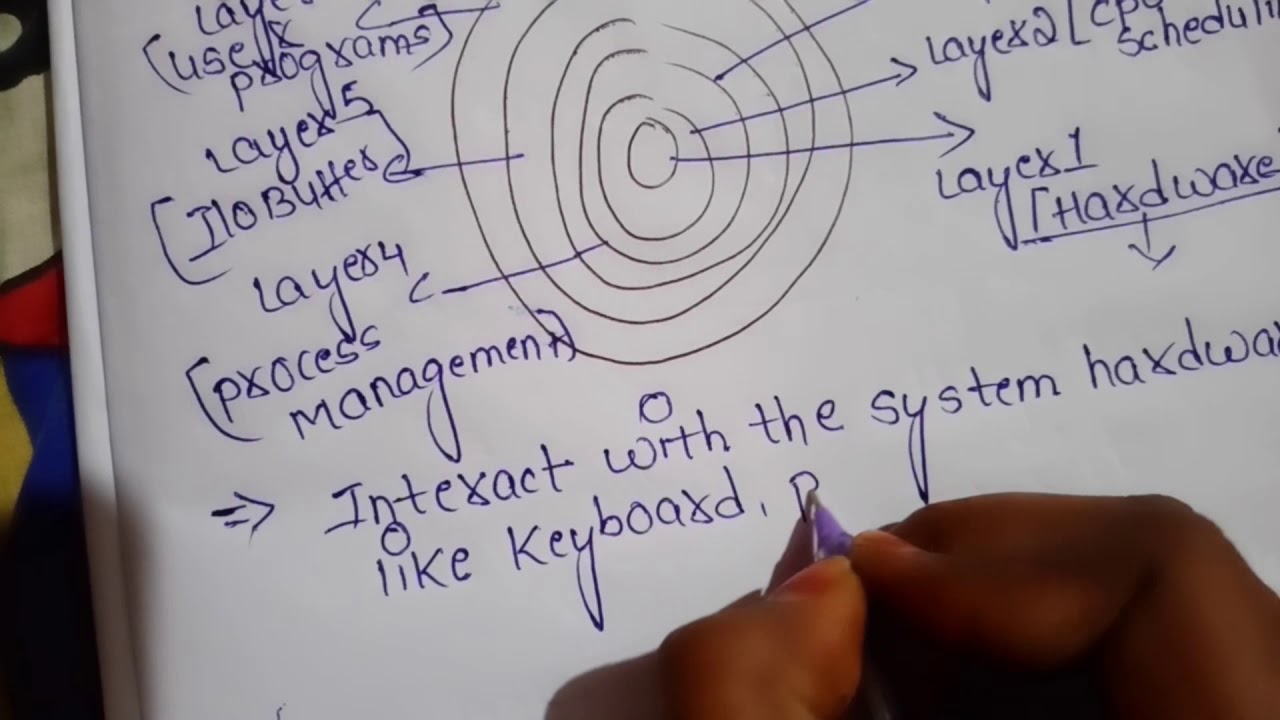 (user
programs)
Layer5
[I/O Buffer
Layer4
(process
management)
Layer2 [CPU
Scheduli
Layer1
[Hardware
=> Interact with the system hardwa
like Keyboard, P